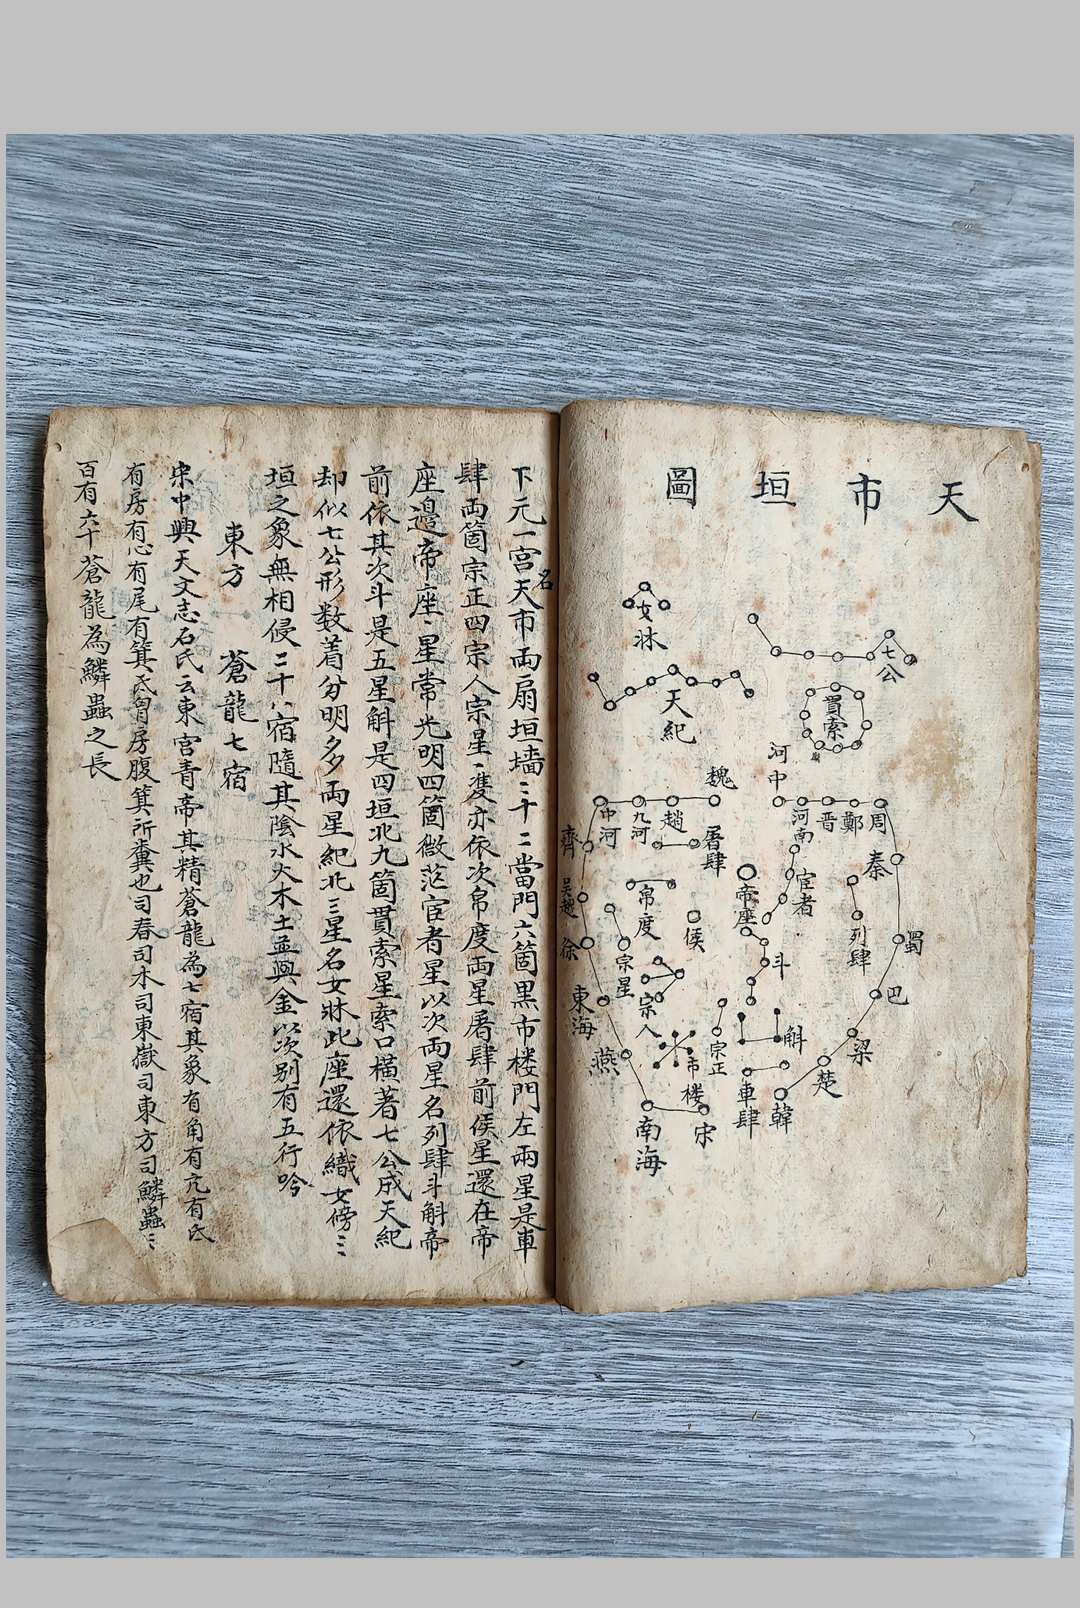 天市垣圖
女牀
七公
天紀
貫索
河中
魏
趙
九河
中河
齊
吳越
徐
東海
燕
南海
宋
河南
晋
鄭
周
秦
蜀
巴
梁
楚
韓
屠肆
帛度
侯
帝座
宦者
列肆
斗
宗星
宗人
宗正
市楼
斛
車肆
下元一宮名天市兩扇垣墙二十二當門六箇黑市楼門左兩星是車
肆兩箇宗正四宗人宗星一雙亦依次帛度両星屠肆前侯星還在帝
座邉帝座一星常光明四箇微茫宦者星以次両星名列肆斗斛帝
前依其次斗是五星斛是四垣北九箇貫索星索口橫著七公成天紀
却似七公形数着分明多両星紀北三星名女牀此座還依織女傍三
垣之象無相侵二十八宿隨其陰水火木土並與金以次別有五行吟
東方 蒼龍七宿
宋中興天文志石氏云東宮青帝其精蒼龍為七宿其象有角有亢有氐
有房有心有尾有箕氐胷房腹箕所糞也司春司木司東嶽司東方司鱗蟲三
百有六十蒼龍為鱗蟲之長